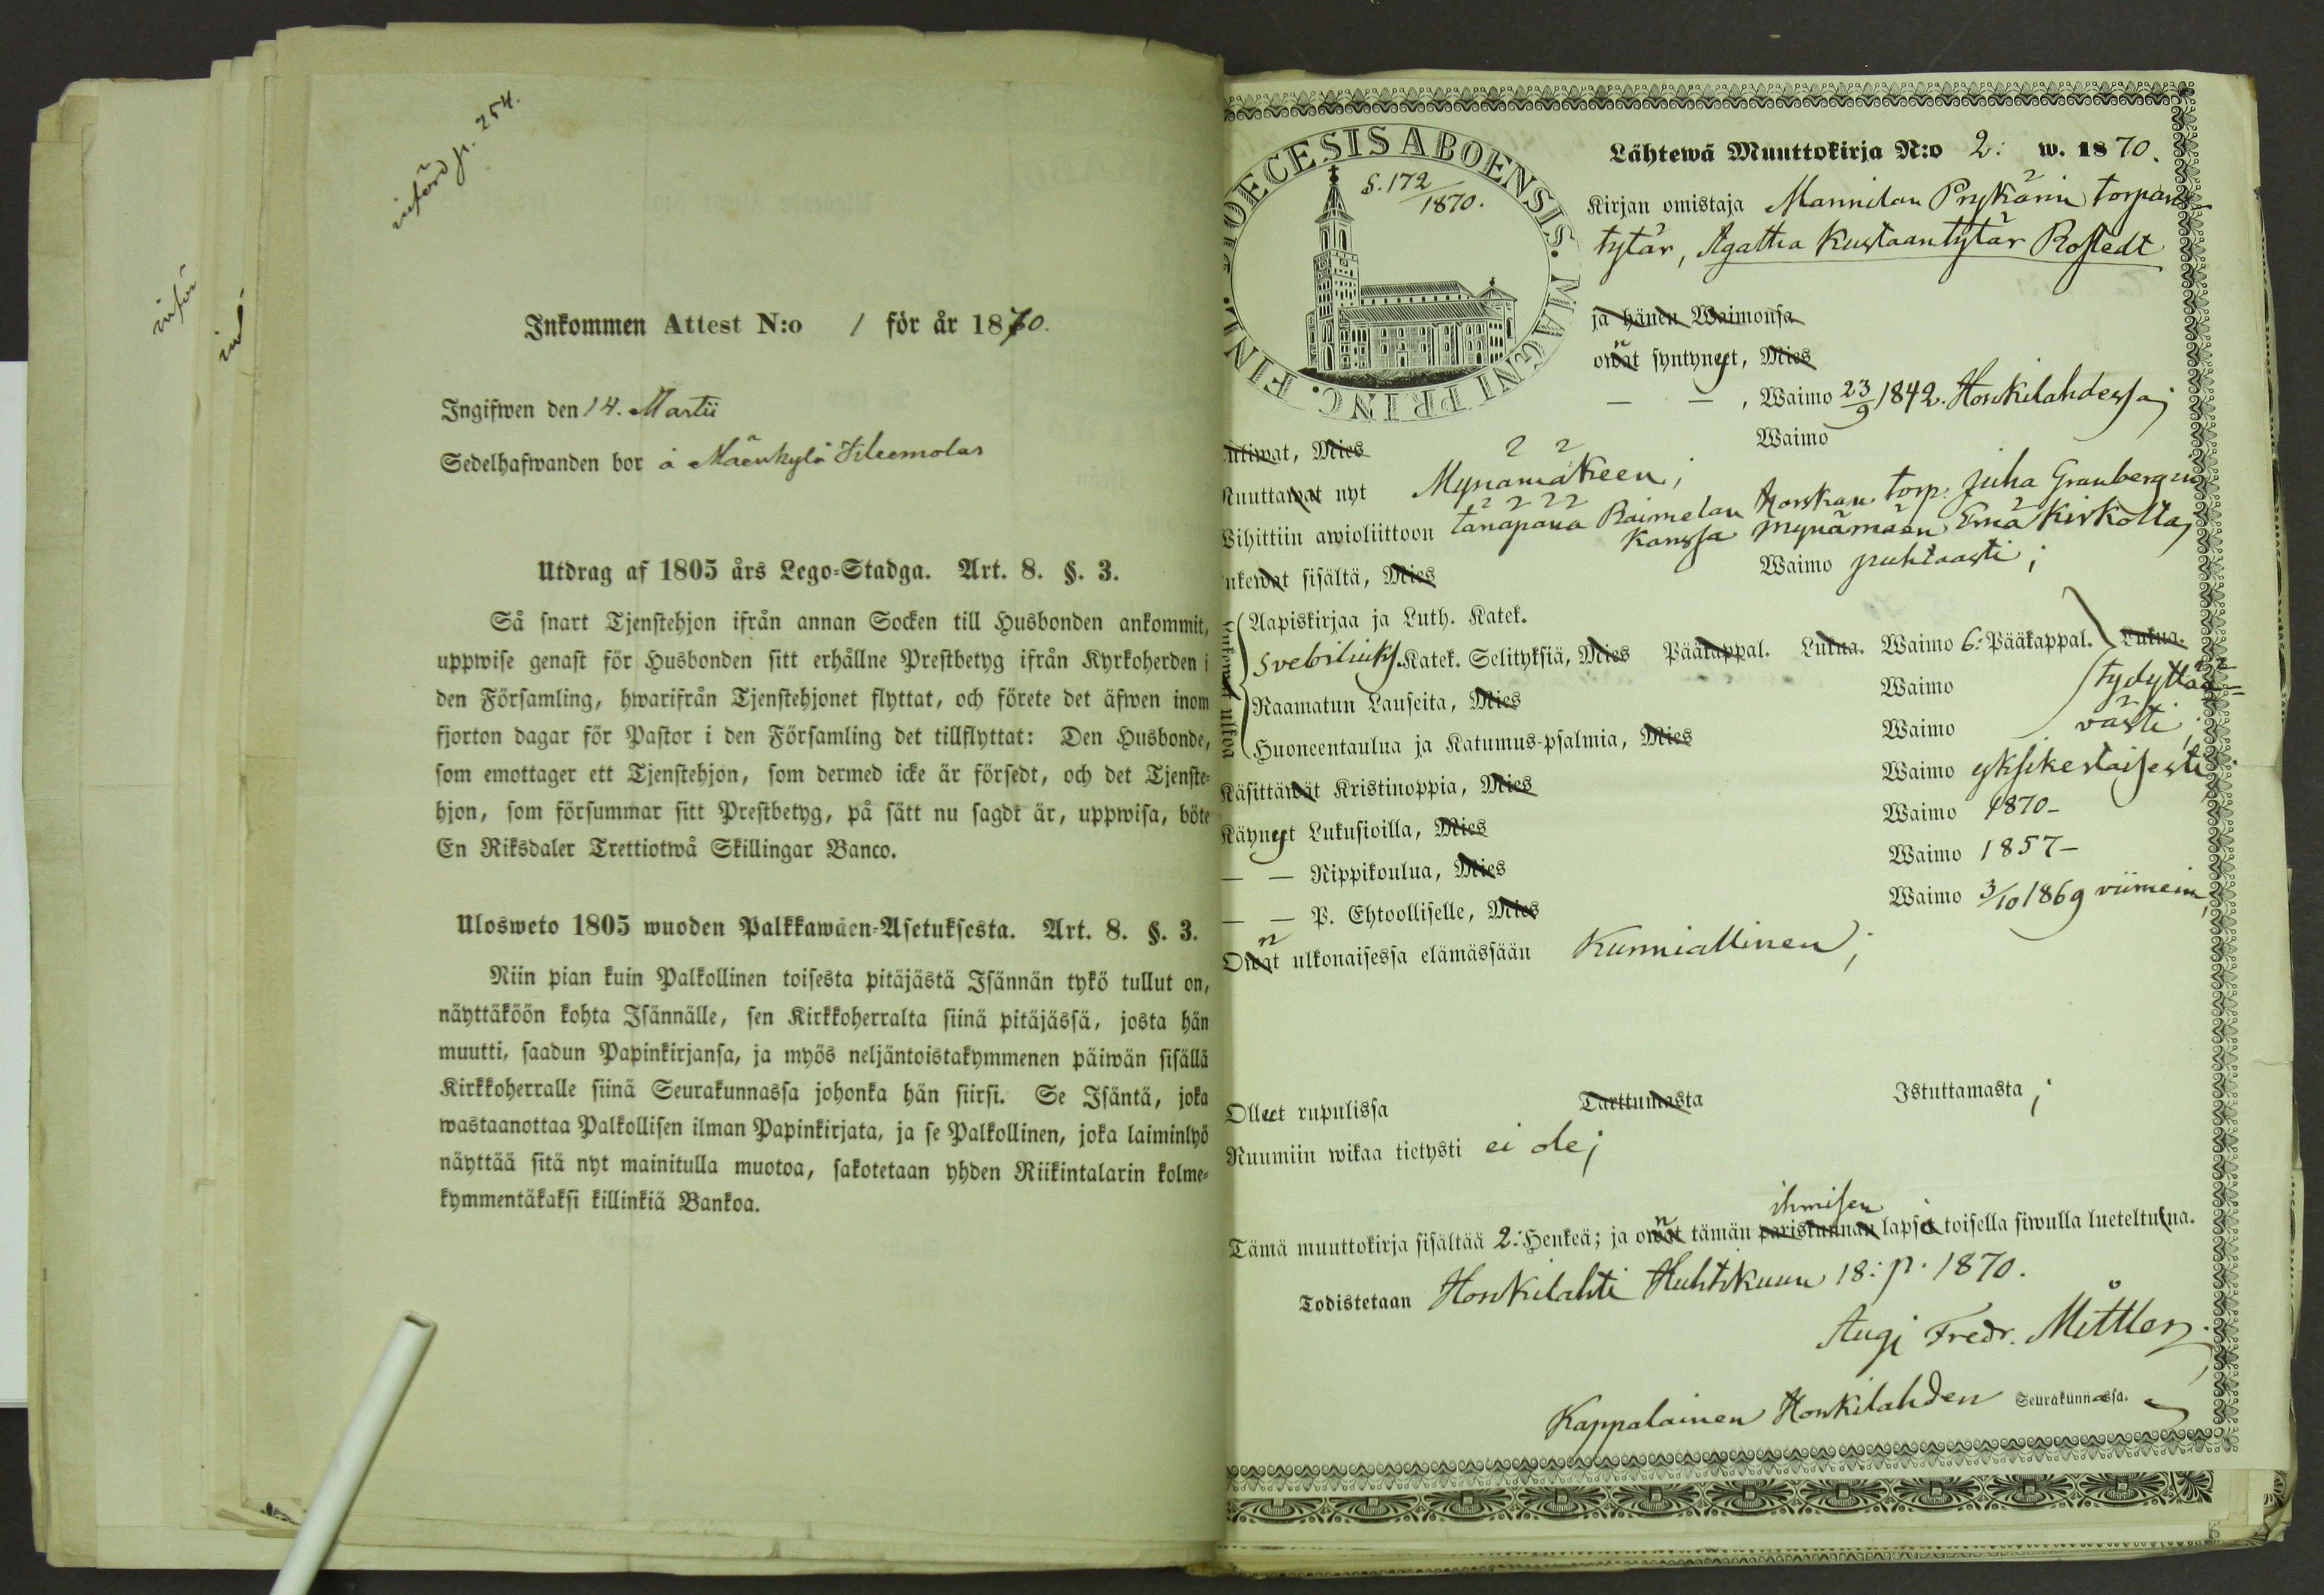 införd p. 254.
Inkommen Attest N:o 1 för år 1870.
Ingifwen den 14. Martii
Sedelhafwanden bor å Mäenkylä Kleemolas
Utdrag af 1805 års Lego-Stadga. Art. 8. §. 3.
Så snart Tjenstehjon ifrån annan Socken till Husbonden ankommit,
uppwise genast för Husbonden sitt erhållne Prestbetyg ifrån Kyrkoherden i
den Församling, hwarifrån Tjenstehjonet flyttat, och förete det äfwen inom
fjorton dagar för Pastor i den Församling det tillflyttat: Den Husbonde,
som emottager ett Tjenstehjon, som dermed icke är försedt, och det Tjenste-
hjon, som försummar sitt Prestbetyg, på sätt nu sagdt är, uppwisa, böte
En Riksdaler Trettiotwå Skillingar Banco.
Ulosweto 1805 wuoden Palkkawäen-Asetuksesta. Art. 8. §. 3.
Niin pian kuin Palkollinen toisesta pitäjästä Isännän tykö tullut on,
näyttäköön kohta Isännälle, sen Kirkkoherralta siinä pitäjässä, josta hän
muutti, saadun Papinkirjansa, ja myös neljäntoistakymmenen päiwän sisällä
Kirkkoherralle siinä Seurakunnassa johonka hän siirsi. Se Isäntä, joka
wastaanottaa Palkollisen ilman Papinkirjata, ja se Palkollinen, joka laiminlyö
näyttää sitä nyt mainitulla muotoa, sakotetaan yhden Riikintalarin kolme-
kymmentäkaksi killinkiä Bankoa.
DIOECESIS ABOENSIS. MAGNI PRINC. FINL.
S. 172/1870.
Lähtewä Muuttokirja N:o 2: w. 1870.
Kirjan omistaja Mannilan Prykärin torpan
tytär, Agatha Kustaantytär Rostedt
ja hänen Waimonsa
owat n syntynyt, Mies
— — , Waimo 23/9 1842. Honkilahdessa;
utiwat, Mies Waimo
Muuttawat nyt Mynämäkeen;
Vihittiin awioliittoon tänäpänä Raimelan Horskan torp. Juha Granbergin
kanssa Mynämäen Emäkirkolla;
ukewat sisältä, Mies Waimo puhtaasti;
Aapiskirjaa ja Luth. Katek.
Svebiliuks. Katek. Selityksiä, Mies Pääkappal. Lukua. Waimo 6: Pääkappal. Lukua.
Raamatun Lauseita, Mies Waimo tydyttä=
Huoneentaulua ja Katumus-psalmia, Mies Waimo västi;
Käsittäwät Kristinoppia, Mies Waimo yksikertaisesti
Käynyt Lukusioilla, Mies Waimo 1870-
— — Rippikoulua, Mies Waimo 1857-
— — P. Ehtoolliselle, Mies Waimo 3/10 1869 viimein;
Owat n ulkonaisessa elämässään Kunniallinen;
Olleet rupulissa Tarttumasta Istuttamasta;
Ruumiin wikaa tietysti ei ole;
Tämä muuttokirja sisältää 2: Henkeä; ja owat n tämän pariskunnan ihmisen lapsia toisella siwulla lueteltuna.
Todistetaan Honkilahti Huhtikuun 18: p. 1870.
Aug. Fredr. Mittler.
Kappalainen Honkilahden Seurakunnassa.